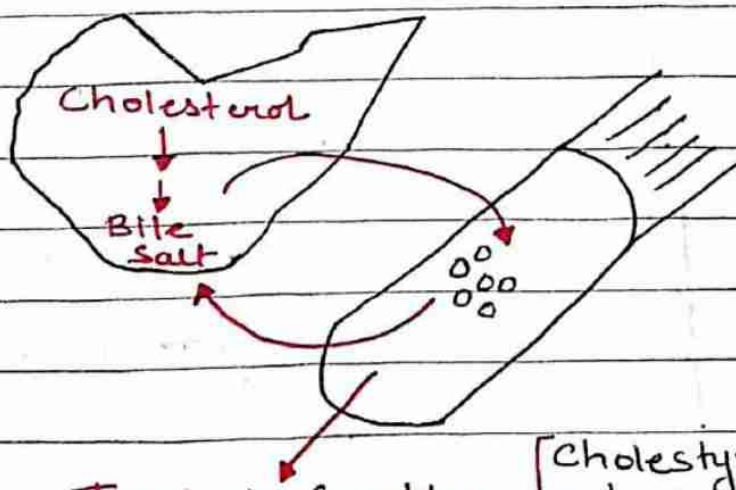 Cholesterol
Bile
Salt
Cholesty